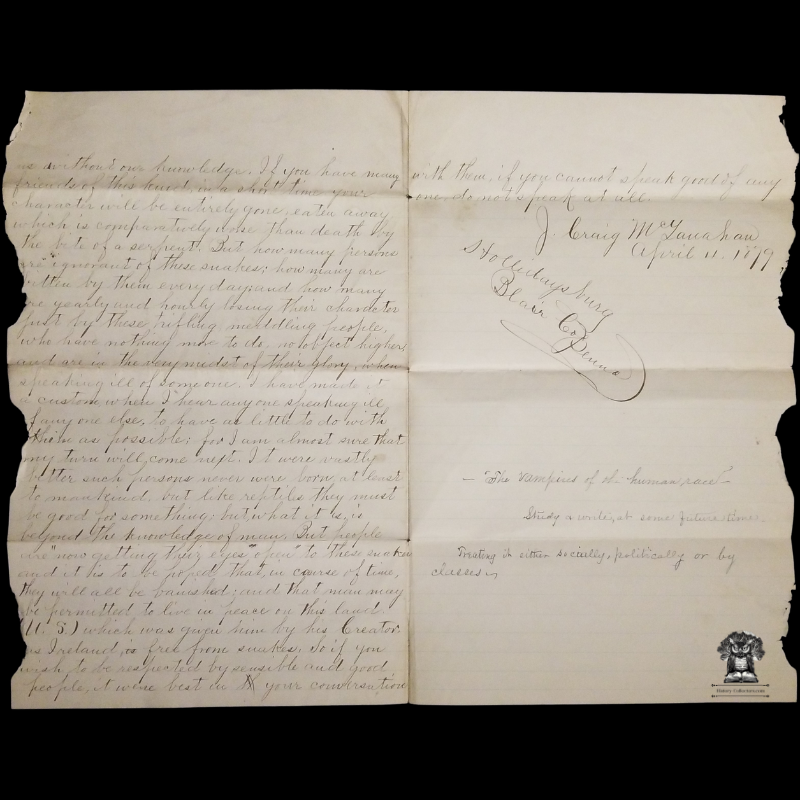 us without our knowledge. If you have many
friends of this kind, in a short time your
character will be entirely gone, eaten away
which is comparatively worse than death by
the bite of a serpent. But how many persons
are "ignorant of these snakes; how many are
bitten by them every day; and how many
are yearly and hourly losing their character
just by these trifling, meddling people,
who have nothing more to do, no object higher
and are in the very midst of their glory, when
speaking ill of someone. I have made it
a custom, when I hear anyone speaking ill
of any one else, to have as little to do with
them as possible; for I am almost sure that
my turn will come next. It were vastly
better such persons never were born, at least
to mankind, but like reptiles they must
be good for something; but what it is, is
beyond the knowledge of many. But people
are "now getting their eyes "open" to these snakes
and it is to be hoped, that, in course of time,
they will all be banished; and that man may
be permitted to live in peace on this land
(U. S.) which was given him by his Creator.
as Ireland, is free from snakes. So if you
wish, to be respected by sensible and good
people, it were best in your conversation
with them, if you cannot speak good of any
one, do not speak at all.
J. Craig McLanahan
April 11. 1879
Hollidaysburg
Blair Co
Penna
— "The vampires of the human race" —
Study & write, at some future time.
Treating it either socially, politically or by
classes